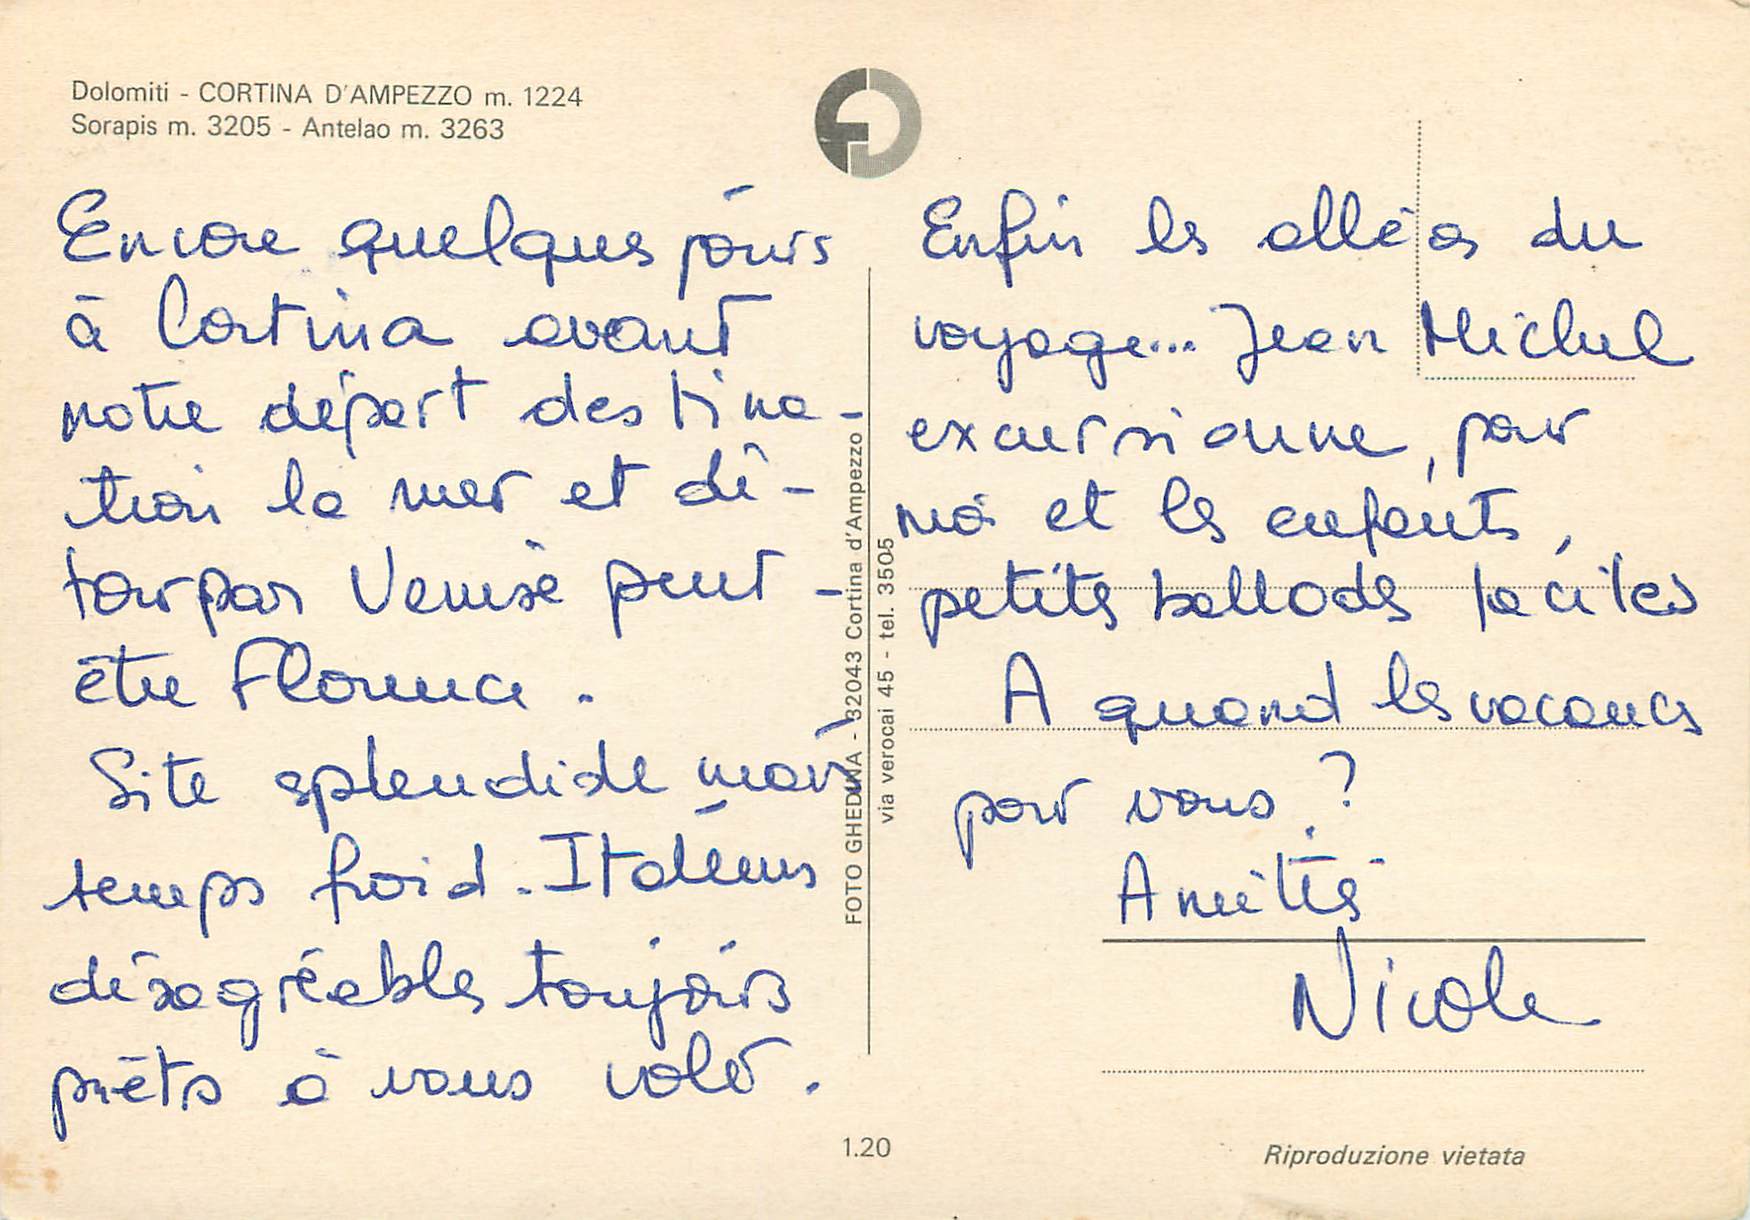 Dolomiti - CORTINA D'AMPEZZO m. 1224
Sorapis m. 3205 - Antelao m. 3263
Encore quelques jours
à Cortina avant
notre départ destina-
tion la mer et dé-
tour par Venise peut-
être Florence.
Site splendide mais
temps froid. Italiens
désagréables toujours
prêts à vous voler.
FOTO GHEDINA - 32043 Cortina d'Ampezzo
via verocai 45 - tel. 3505
Enfin les alléas du
voyage... Jean Michel
excursionne, pour
moi et les enfants,
petites ballades faciles
A quand les vacances
pour vous ?
Amitiés
Nicole
1.20
Riproduzione vietata